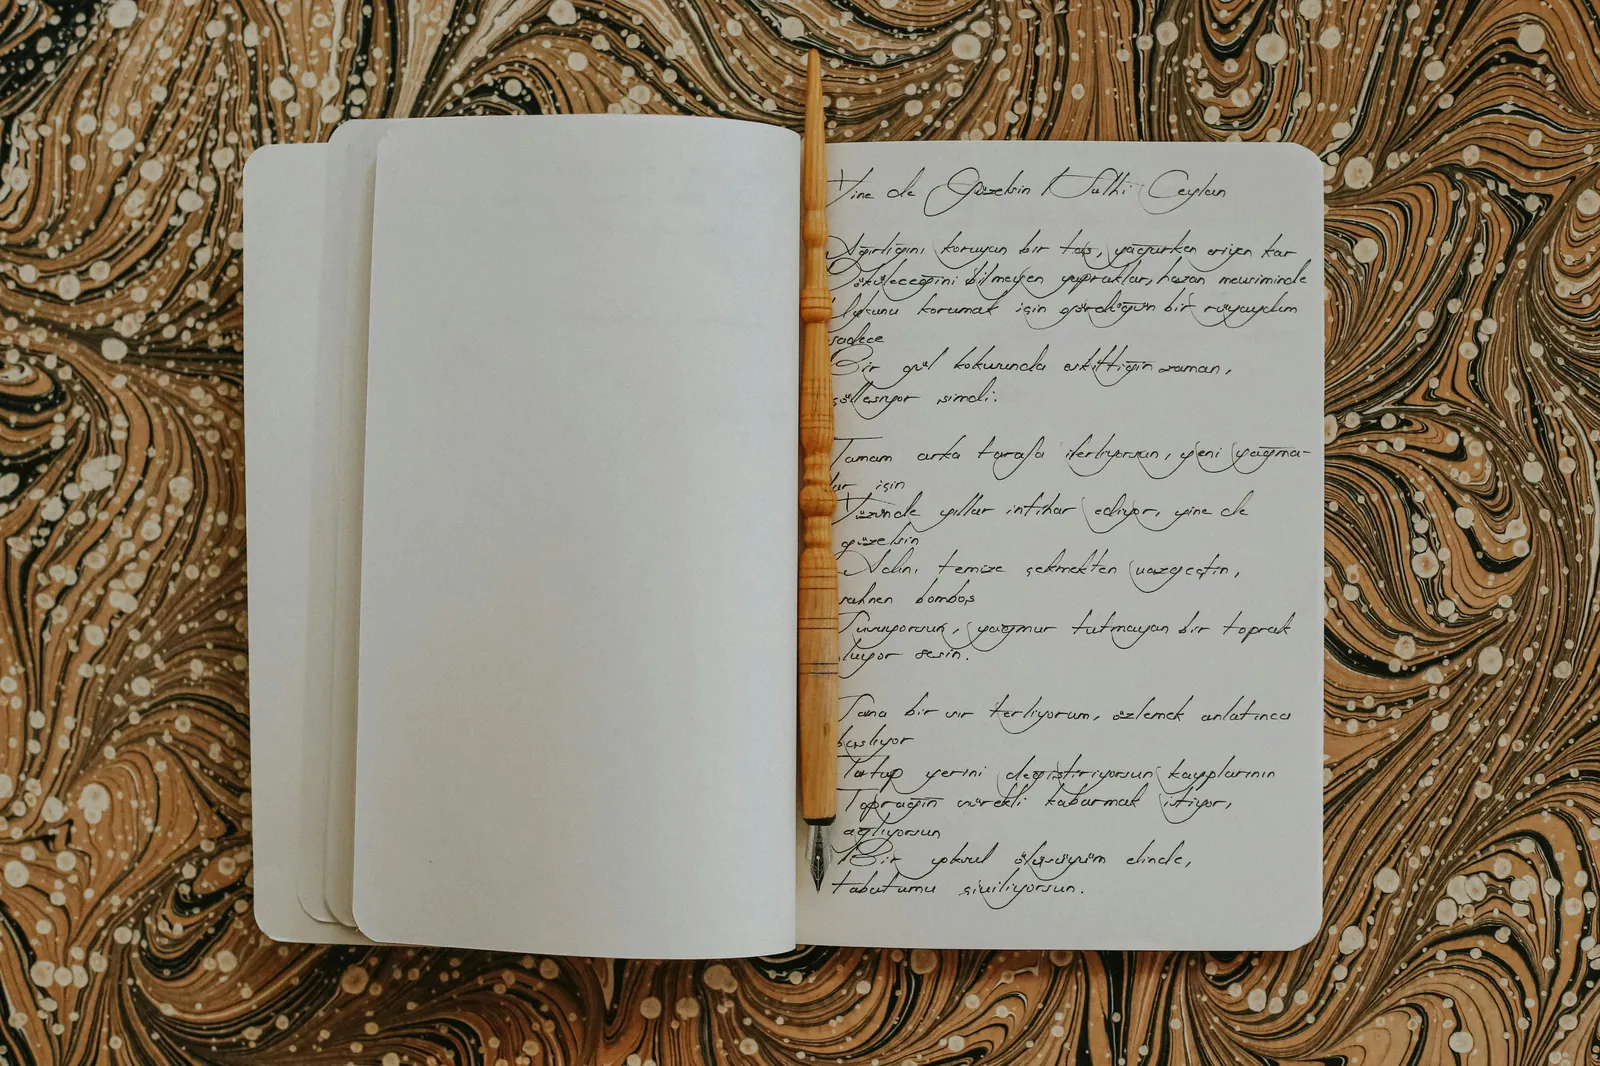 Yine de Güzelsin Nulhi Ceylan
Ağırlığını koruyan bir taş, yağarken eriyen kar
Döküleceğini bilmeyen yapraklar, hazan mevsiminde
Uykunu korumak için gördüğün bir rüyaydım
sadece
Bir gül kokusunda eskittiğin zaman,
çölleşiyor şimdi.
Tamam arka tarafa ilerliyorsun, yeni yağma-
lar için
Yüzünde yıllar intihar ediyor, yine de
güzelsin
Adını temize çekmekten vazgeçtin,
sahnen bomboş
Susuyorsun, yağmur tutmayan bir toprak
oluyor sesin.
Sana bir sır terliyorum, özlemek anlatınca
başlıyor
Tutup yerini değiştiriyorsun kayıplarının
Toprağın sürekli kabarmak istiyor,
ağlıyorsun
Bir yoksul ölüsüyüm elinde,
tabutumu çiviliyorsun.